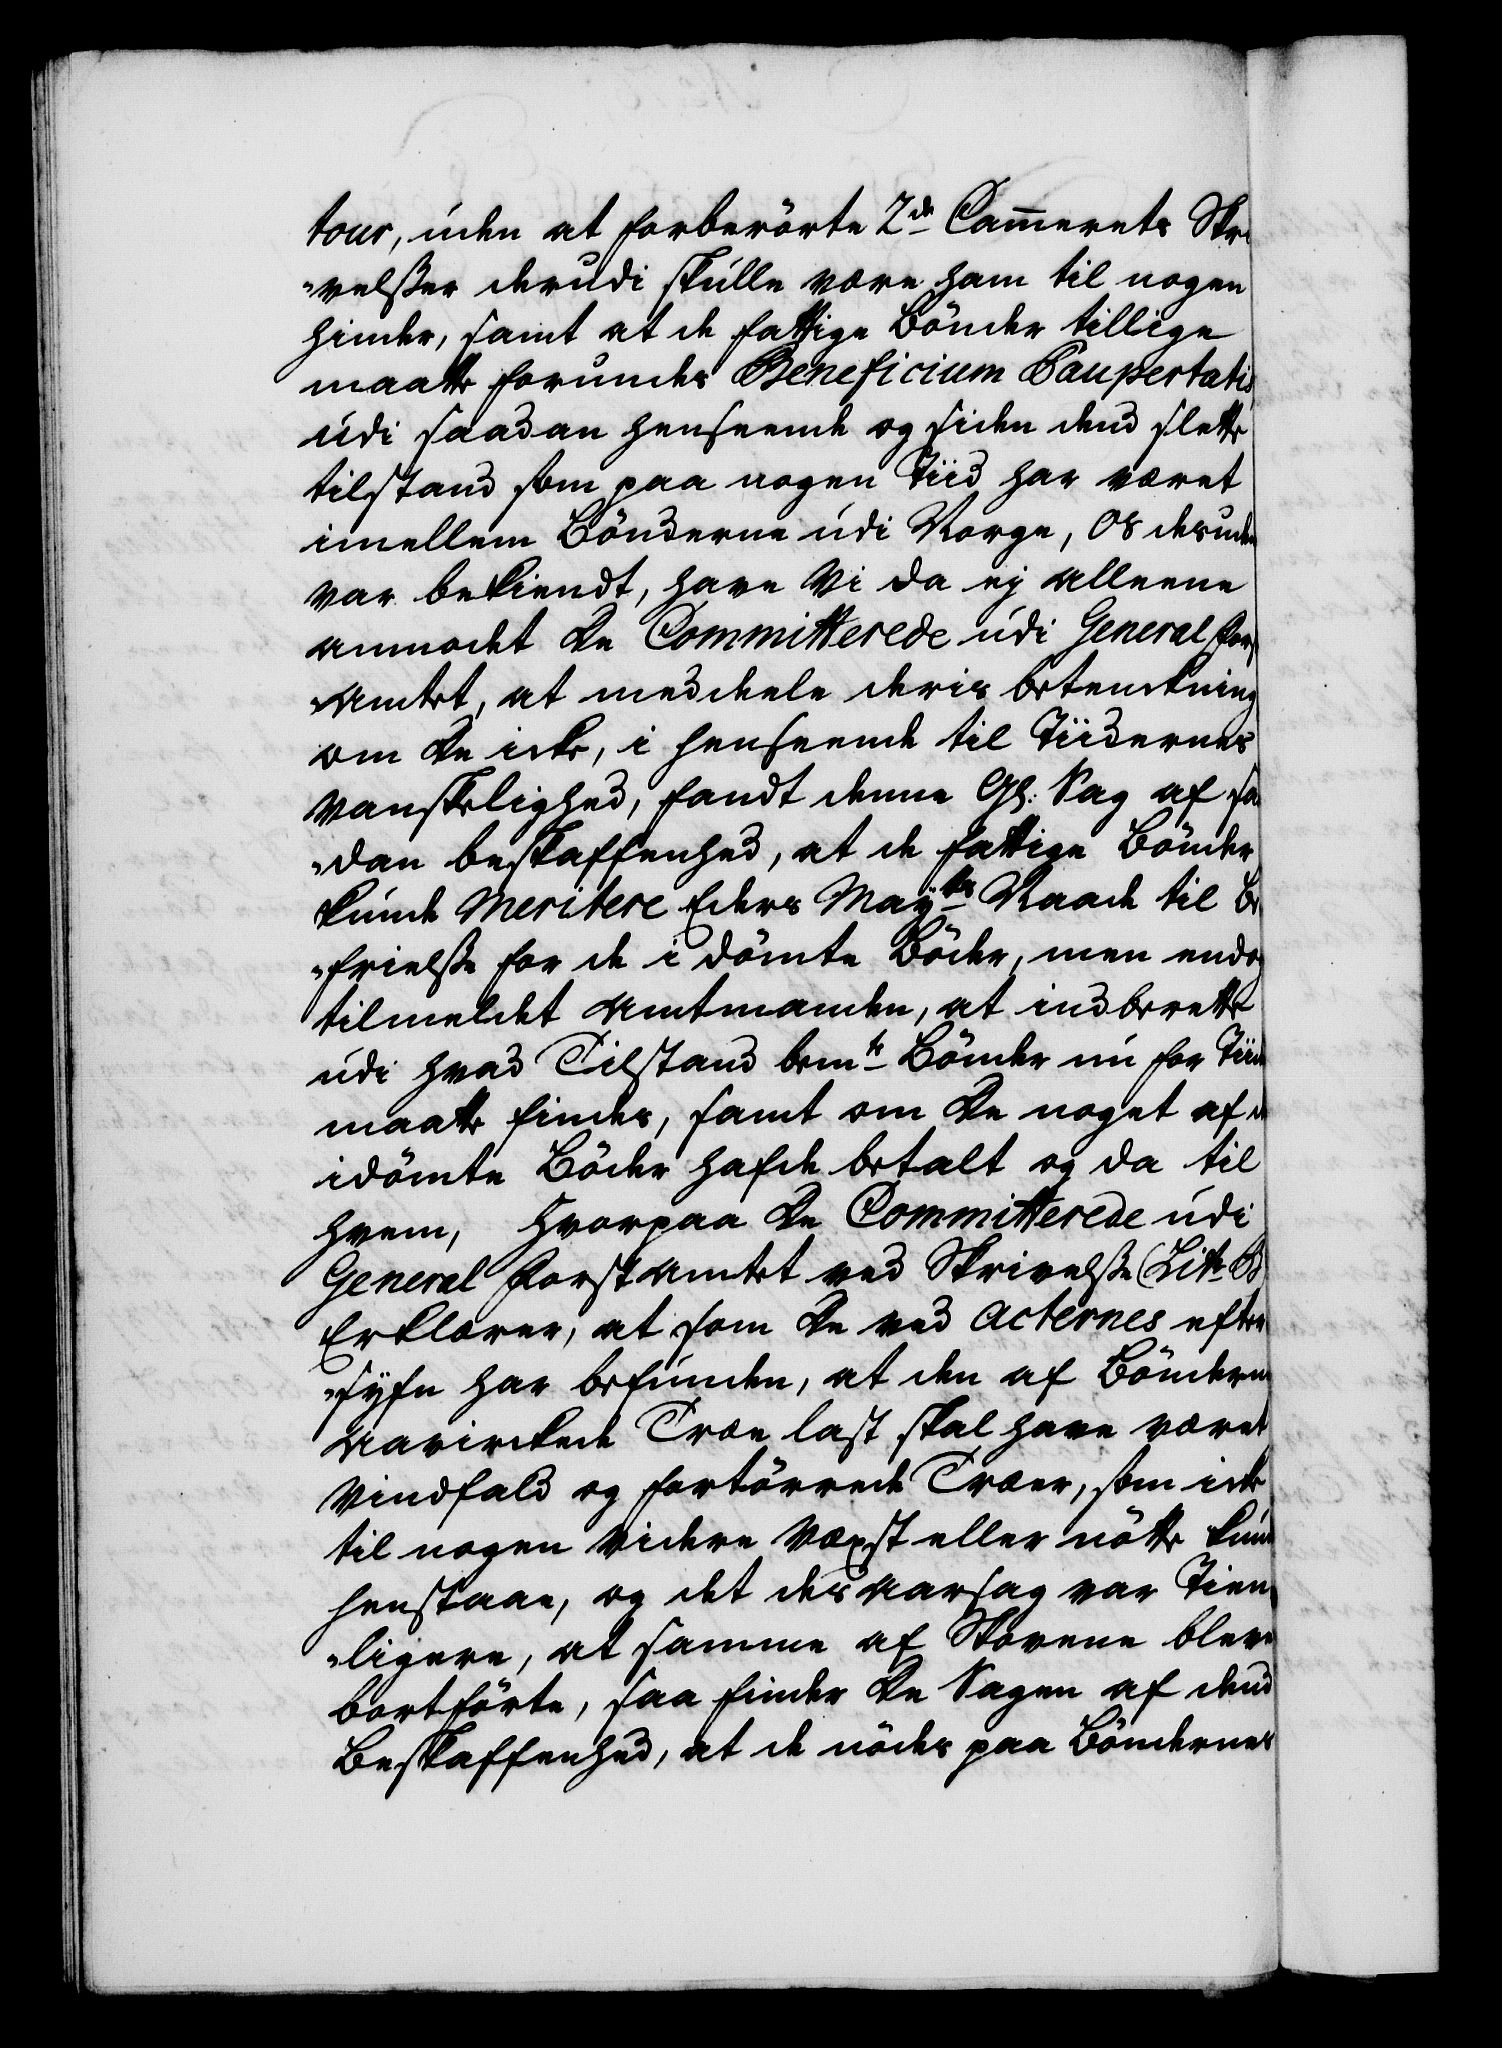 tour, uden at forberörte 2de Cam̄erets Skri
„velßer derudi skulle være ham til nogen
hinder, samt at de fattige Bönder tillige
maatte forundes Beneficium Paupertatis
udi saadan henseende og siden dend slette
tilstand som paa nogen Tiid har været
imellem Bönderne udi Norge, Os desuden
var bekiendt, have Vi da ej alleene
anmodet De Committerede udi General Forst
„Amtet, at meddeele deris betenckning
om De icke, i henseende til Tiidernes
vanskelighed, fandt denne Gl: Sag af saa
„dan beskaffenhed, at de fattige Bönder
kunde Meritere Eders Mayts Naade til Be
„frielße for de i dömte Böder, men endog
tilmeldet Amtmanden, at indberette
udi hvad Tilstand bemte Bönder nu for Tiiden
maatte findes, samt om De noget af de
idömte Böder hafde betalt og da til
hvem, hvorpaa De Committerede udi
General Forst Amtet ved Skrivelße (Litr B)
Erklærer, at som De ved Acternes efter
„syfn har befunden, at den af Bönderne
Aavirckede Træe last skal have været
Vindfald og fortörrede Træer, som icke
til nogen videre Væxt eller nötte kunde
henstaae, og det des Aarsag var Tien
„ligere, at samme af Skovene bleve
bortförte, saa finder De Sagen af dend
Beskaffenhed, at de nödes paa Böndernes